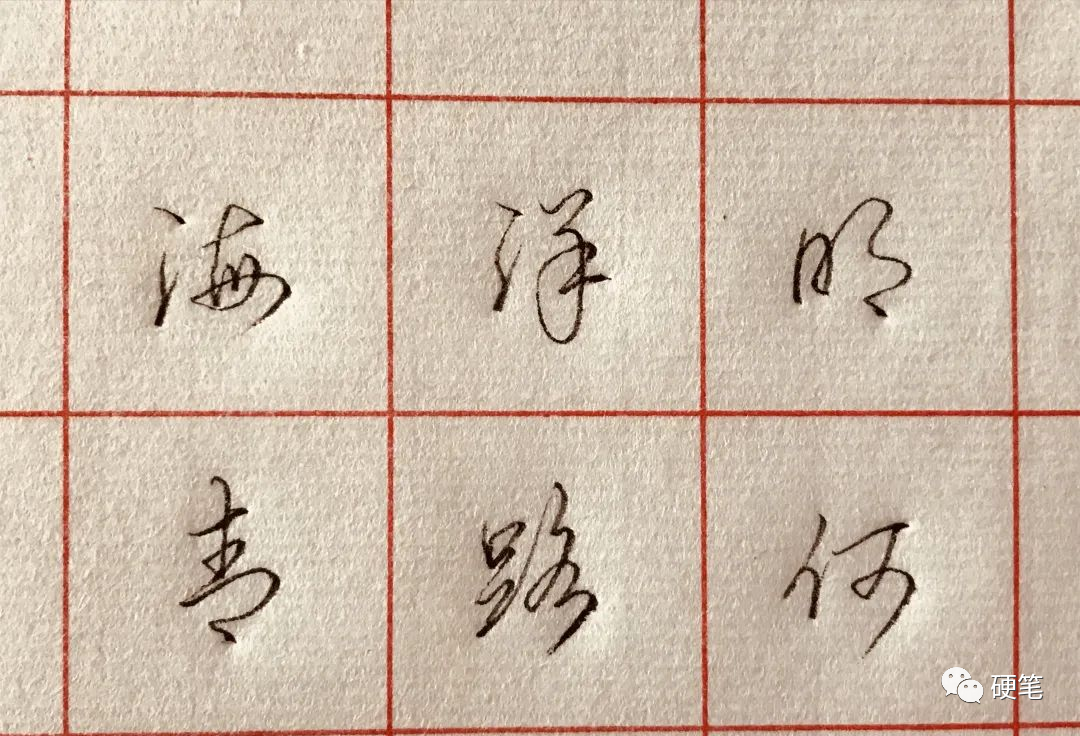 海洋明
青路何
硬笔